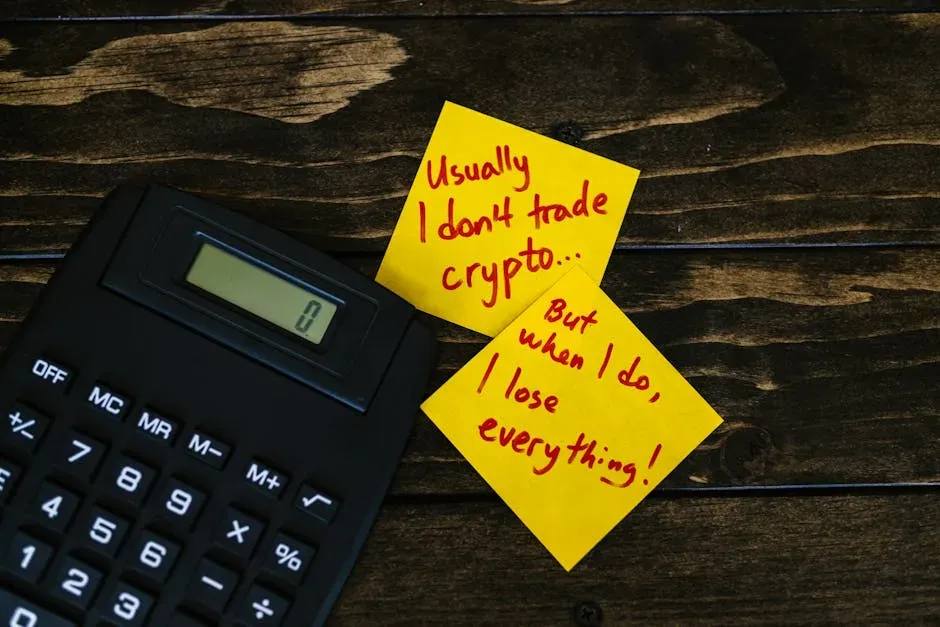 Usually
I don't trade
crypto...
But
when I do,
I lose
everything!
0
OFF
MC
MR
M-
M+
√
+/-
7
8
9
×
%
E
4
5
6
-
÷
1
2
3
0